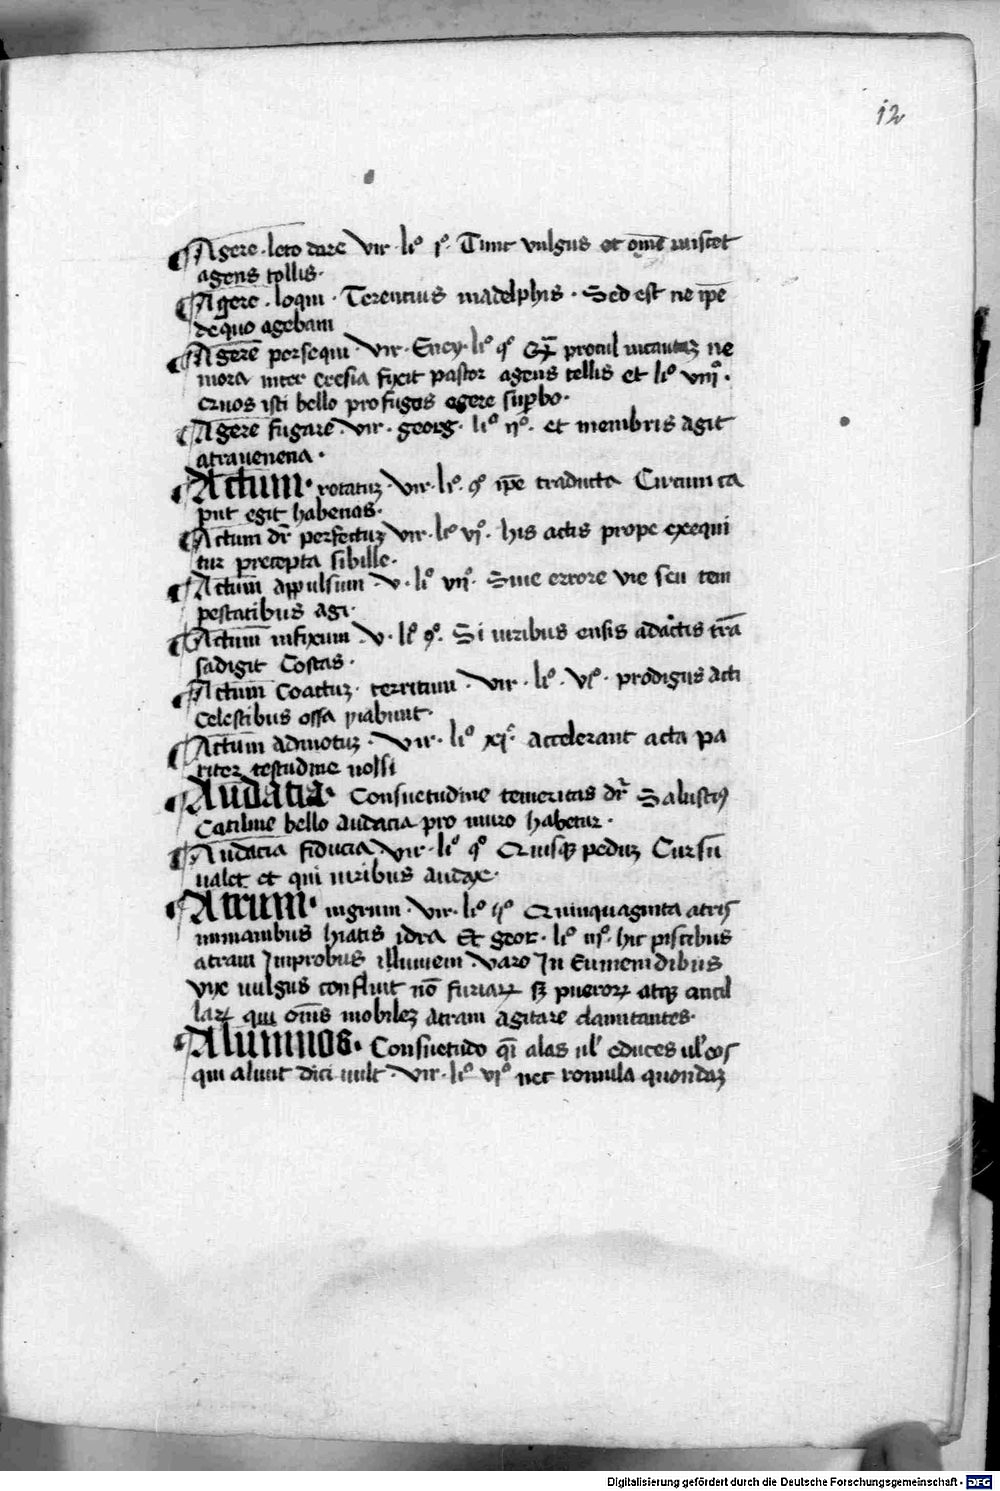 12
Agere · leto dare Vir · liº pº · Tunc vulgus et om̄e miscet
agens tellis ·
Agere · loqui · Terentius in adelphis · Sed est ne ip̄e
de quo agebam
Agere persequi · Vir · Eney · liº qº procul incautaꝫ ne
mora inter cresia fixit pastor agens tellis et liº viiiº ·
Cruos isti bello profugos agere sup̱bo ·
Agere fugare · Vir · georg · liº ijº · et membris agit
atravenena ·
Actum · rotatuꝫ · Vir · liº · qº ip̄e traducta Circum ca
put egit habenas ·
Actum dr̄ perfectuꝫ Vir · liº vjº · his actis prope exequi
tur precepta sibille ·
Actum appulsum · v · liº vijº · Siue errore vie seu tem
pestatibus agi ·
Actum infixum · v · liº qº · Si viribus ensis adactis trā
sadigit Costas ·
Actum Coactuꝫ · territum · Vir · liº · vjº · prodigiis acti
Celestibus ossa piabunt ·
Actum admotuꝫ · Vir · liº xjº · accelerant acta pa
riter testudine uolsi
Audatia · Consuetudine temeritas dr̄ Salustiꝰ
Catiline bello audacia pro muro habetur ·
Audacia fiducia · Vir · liº qº Quisqꝫ peduꝫ Cursu
ualet et qui uiribus audax ·
Atrum · nigrum · Vir · liº sº Quinquaginta atris
inmanibus hiatis idra Et geor · liº iijº · hic piscibus
atram Improbus illuuiem · Varo In Eumenidibus
Vix uulgus confluit nō furiaꝝ sꝫ pueroꝝ atqꝫ ancil
laꝝ qui om̄s mobileꝫ atram agitare clamitantes ·
Alumnos · Consuetudo qͥ alas ul̓ educes ul̓ eos
qui alunt dici uult · Vir · liº viº nec romula quondaꝫ
Digitalisierung gefördert durch die Deutsche Forschungsgemeinschaft - DFG